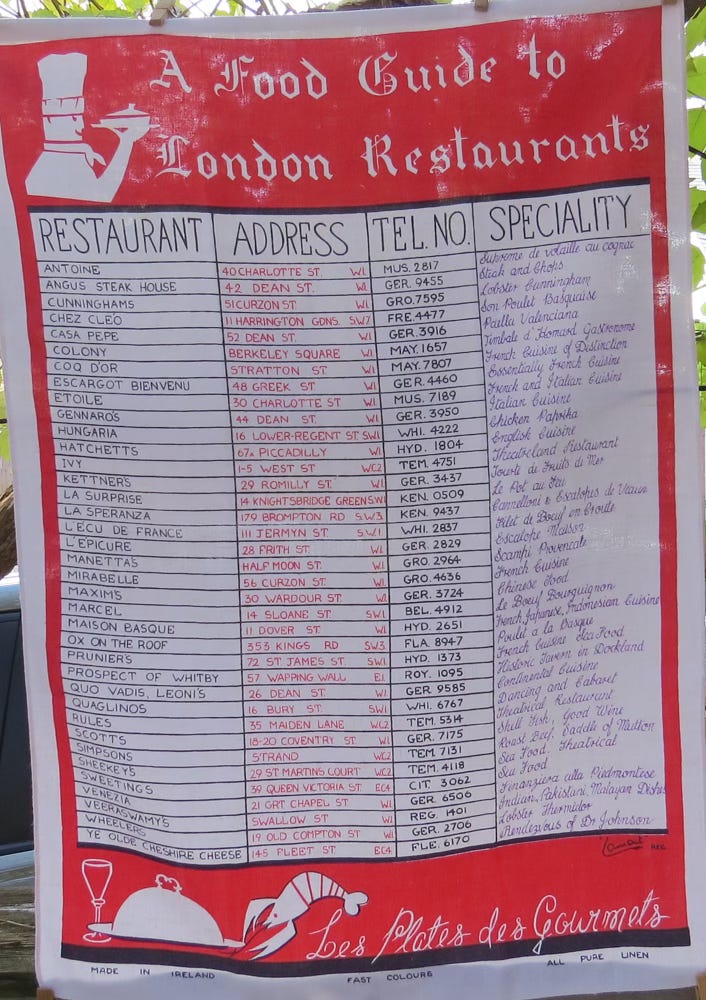 A Food Guide to
London Restaurants
RESTAURANT ADDRESS TEL. NO. SPECIALITY
ANTOINE 40 CHARLOTTE ST. W1 MUS. 2817 Supreme de volaille au cognac
ANGUS STEAK HOUSE 42 DEAN ST. W1 GER. 9455 Steak and Chops
CUNNINGHAMS 51 CURZON ST. W1 GRO. 7595 Lobster Cunningham
CHEZ CLEO 11 HARRINGTON GDNS. SW7 FRE. 4477 Son Poulet Basquaise
CASA PEPE 52 DEAN ST. W1 GER. 3916 Paella Valenciana
COLONY BERKELEY SQUARE W1 MAY. 1657 Timbale d'Homard Gastronome
COQ D'OR STRATTON ST. W1 MAY. 7807 French Cuisine of Distinction
ESCARGOT BIENVENU 48 GREEK ST. W1 GER. 4460 Essentially French Cuisine
ETOILE 30 CHARLOTTE ST W1 MUS. 7189 French and Italian Cuisine
GENNARO'S 44 DEAN ST. W1 GER. 3950 Italian Cuisine
HUNGARIA 16 LOWER-REGENT ST SW1 WHI. 4222 Chicken Paprika
HATCHETTS 67A PICCADILLY W1 HYD. 1804 English Cuisine
IVY 1-5 WEST ST WC2 TEM. 4751 Theatreland Restaurant
KETTNERS 29 ROMILLY ST. W1 GER. 3437 Tourte de Fruits de Mer
LA SURPRISE 14 KNIGHTSBRIDGE GREEN SW1 KEN. 0509 Le Pot au Feu
LA SPERANZA 179 BROMPTON RD S.W.3 KEN. 9437 Cannelloni & Escalopes de Veaux
L'ECU DE FRANCE 111 JERMYN ST S.W.1 WHI. 2837 Filet de Boeuf en Croute
L'EPICURE 28 FRITH ST. W1 GER. 2829 Escalope Maison
MANETTAS HALF MOON ST. W1 GRO. 2964 Scampi Provencale
MIRABELLE 56 CURZON ST. W1 GRO. 4636 French Cuisine
MAXIMS 30 WARDOUR ST. W1 GER. 3724 Chinese Food
MARCEL 14 SLOANE ST. SW1 BEL. 4912 Le Boeuf Bourguignon
MAISON BASQUE 11 DOVER ST W1 HYD. 2651 French, Japanese, Indonesian Cuisine
OX ON THE ROOF 353 KINGS RD SW3 FLA. 8947 Poulet a la Basque
PRUNIERS 72 ST. JAMES ST. SW1 HYD. 1373 French Cuisine Sea Food
PROSPECT OF WHITBY 57 WAPPING WALL E1 ROY. 1095 Historic Tavern in Dockland
QUO VADIS, LEONI'S 26 DEAN ST. W1 GER 9585 Continental Cuisine
QUAGLINOS 16 BURY ST. SW1 WHI. 6767 Dancing and Cabaret
RULES 35 MAIDEN LANE WC2 TEM. 5314 Theatrical Restaurant
SCOTTS 18-20 COVENTRY ST. W1 GER. 7175 Shell Fish, Good Wine
SIMPSONS STRAND WC2 TEM. 7131 Roast Beef, Saddle of Mutton
SHEEKEYS 29 ST MARTINS COURT WC2 TEM. 4118 Sea Food. Theatrical
SWEETINGS 39 QUEEN VICTORIA ST. EC4 CIT. 3062 Sea Food
VENEZIA 21 GRT CHAPEL ST. W1 GER. 6506 Finanziera alla Piedmontese
VEERASWAMY'S SWALLOW ST. W1 REG. 1401 Indian, Pakistani, Malayan Dishes
WHEELERS 19 OLD COMPTON ST W1 GER. 2706 Lobster Thermidor
YE OLDE CHESHIRE CHEESE 145 FLEET ST EC4 FLE. 6170 Rendezvous of Dr Johnson
Lamont REG.
Les Plates des Gourmets
MADE IN IRELAND FAST COLOURS ALL PURE LINEN